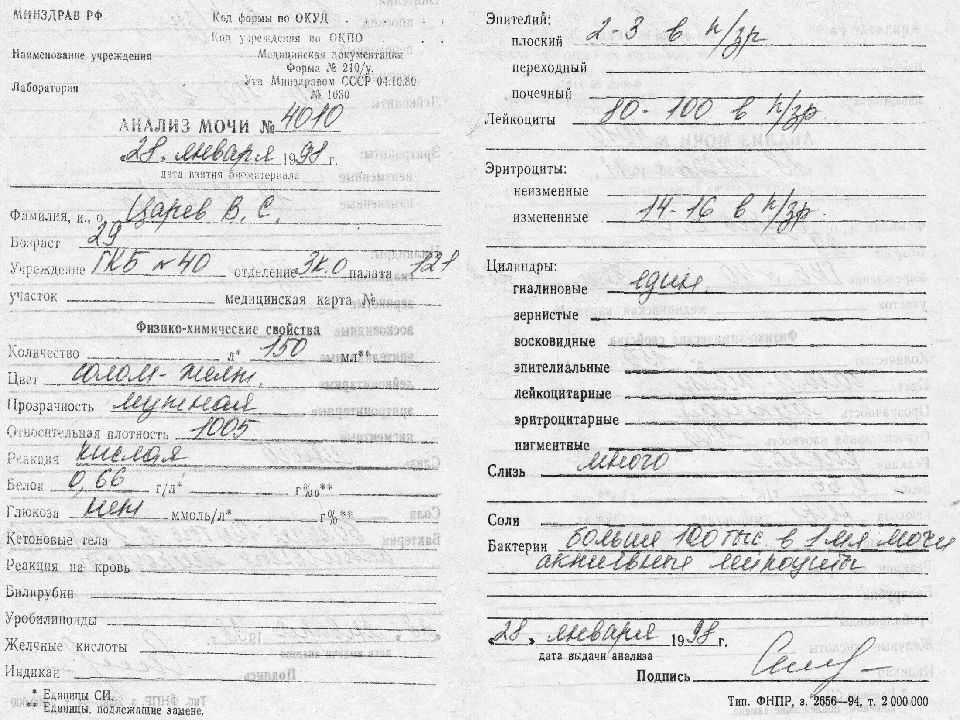 МИНЗДРАВ РФ
Код формы по ОКУД
Код учреждения по ОКПО
Наименование учреждения
Медицинская документация
Форма № 210/у.
Утв Минздравом СССР 04.10.80
№ 1030
Лаборатория
АНАЛИЗ МОЧИ № 4010
28. января 1998 г.
дата взятия биоматериала
Фамилия, и., о. Царев В. С.
Возраст 29
Учреждение ГКБ №40 отделение 3к.о палата 121
участок медицинская карта №
Физико-химические свойства
Количество л* 150 мл**
Цвет солом-желт.
Прозрачность мутная
Относительная плотность 1005
Реакция кислая
Белок 0,66 г/л* г%₀**
Глюкоза нет ммоль/л* г%**
Кетоновые тела
Реакция на кровь
Билирубин
Уробилиноиды
Желчные кислоты
Индикан
* Единицы СИ.
** Единицы, подлежащие замене.
Эпителий:
плоский 2-3 в п/зр
переходный
почечный
Лейкоциты 80-100 в п/зр.
Эритроциты:
неизменные
измененные 14-16 в п/зр.
Цилиндры:
гиалиновые един
зернистые
восковидные
эпителиальные
лейкоцитарные
эритроцитарные
пигментные
Слизь много
Соли
Бактерии больше 100 тыс. в 1 мл мочи
активные лейкоциты
«28» января 1998 г.
дата выдачи анализа
Подпись
Тип. ФНПР, з. 2656—94, т. 2 000 000